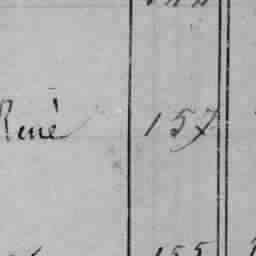 René 157
155